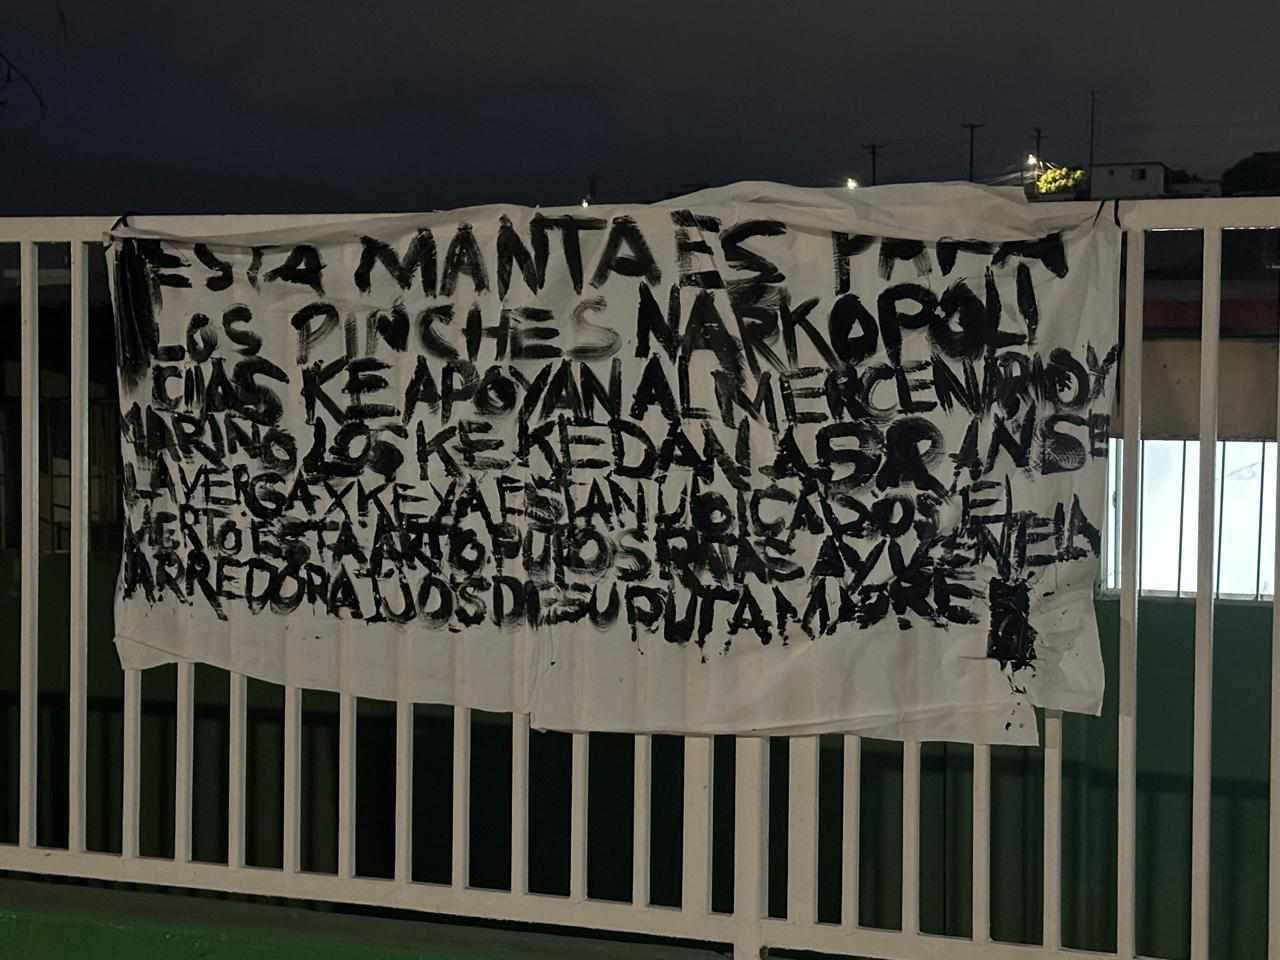 ESTA MANTA ES PARA
LOS PINCHES NARKOPOLI
CIIAS KE APOYAN AL MERCENARIO Y
MARINO LOS KE KEDAN ASRANSE
LA VERGA X KE YA ESTAN UBICADOS EL
ESTA ARTO PUTOS RATAS
ARREDORA IJOS DE SU PUTA MADRE